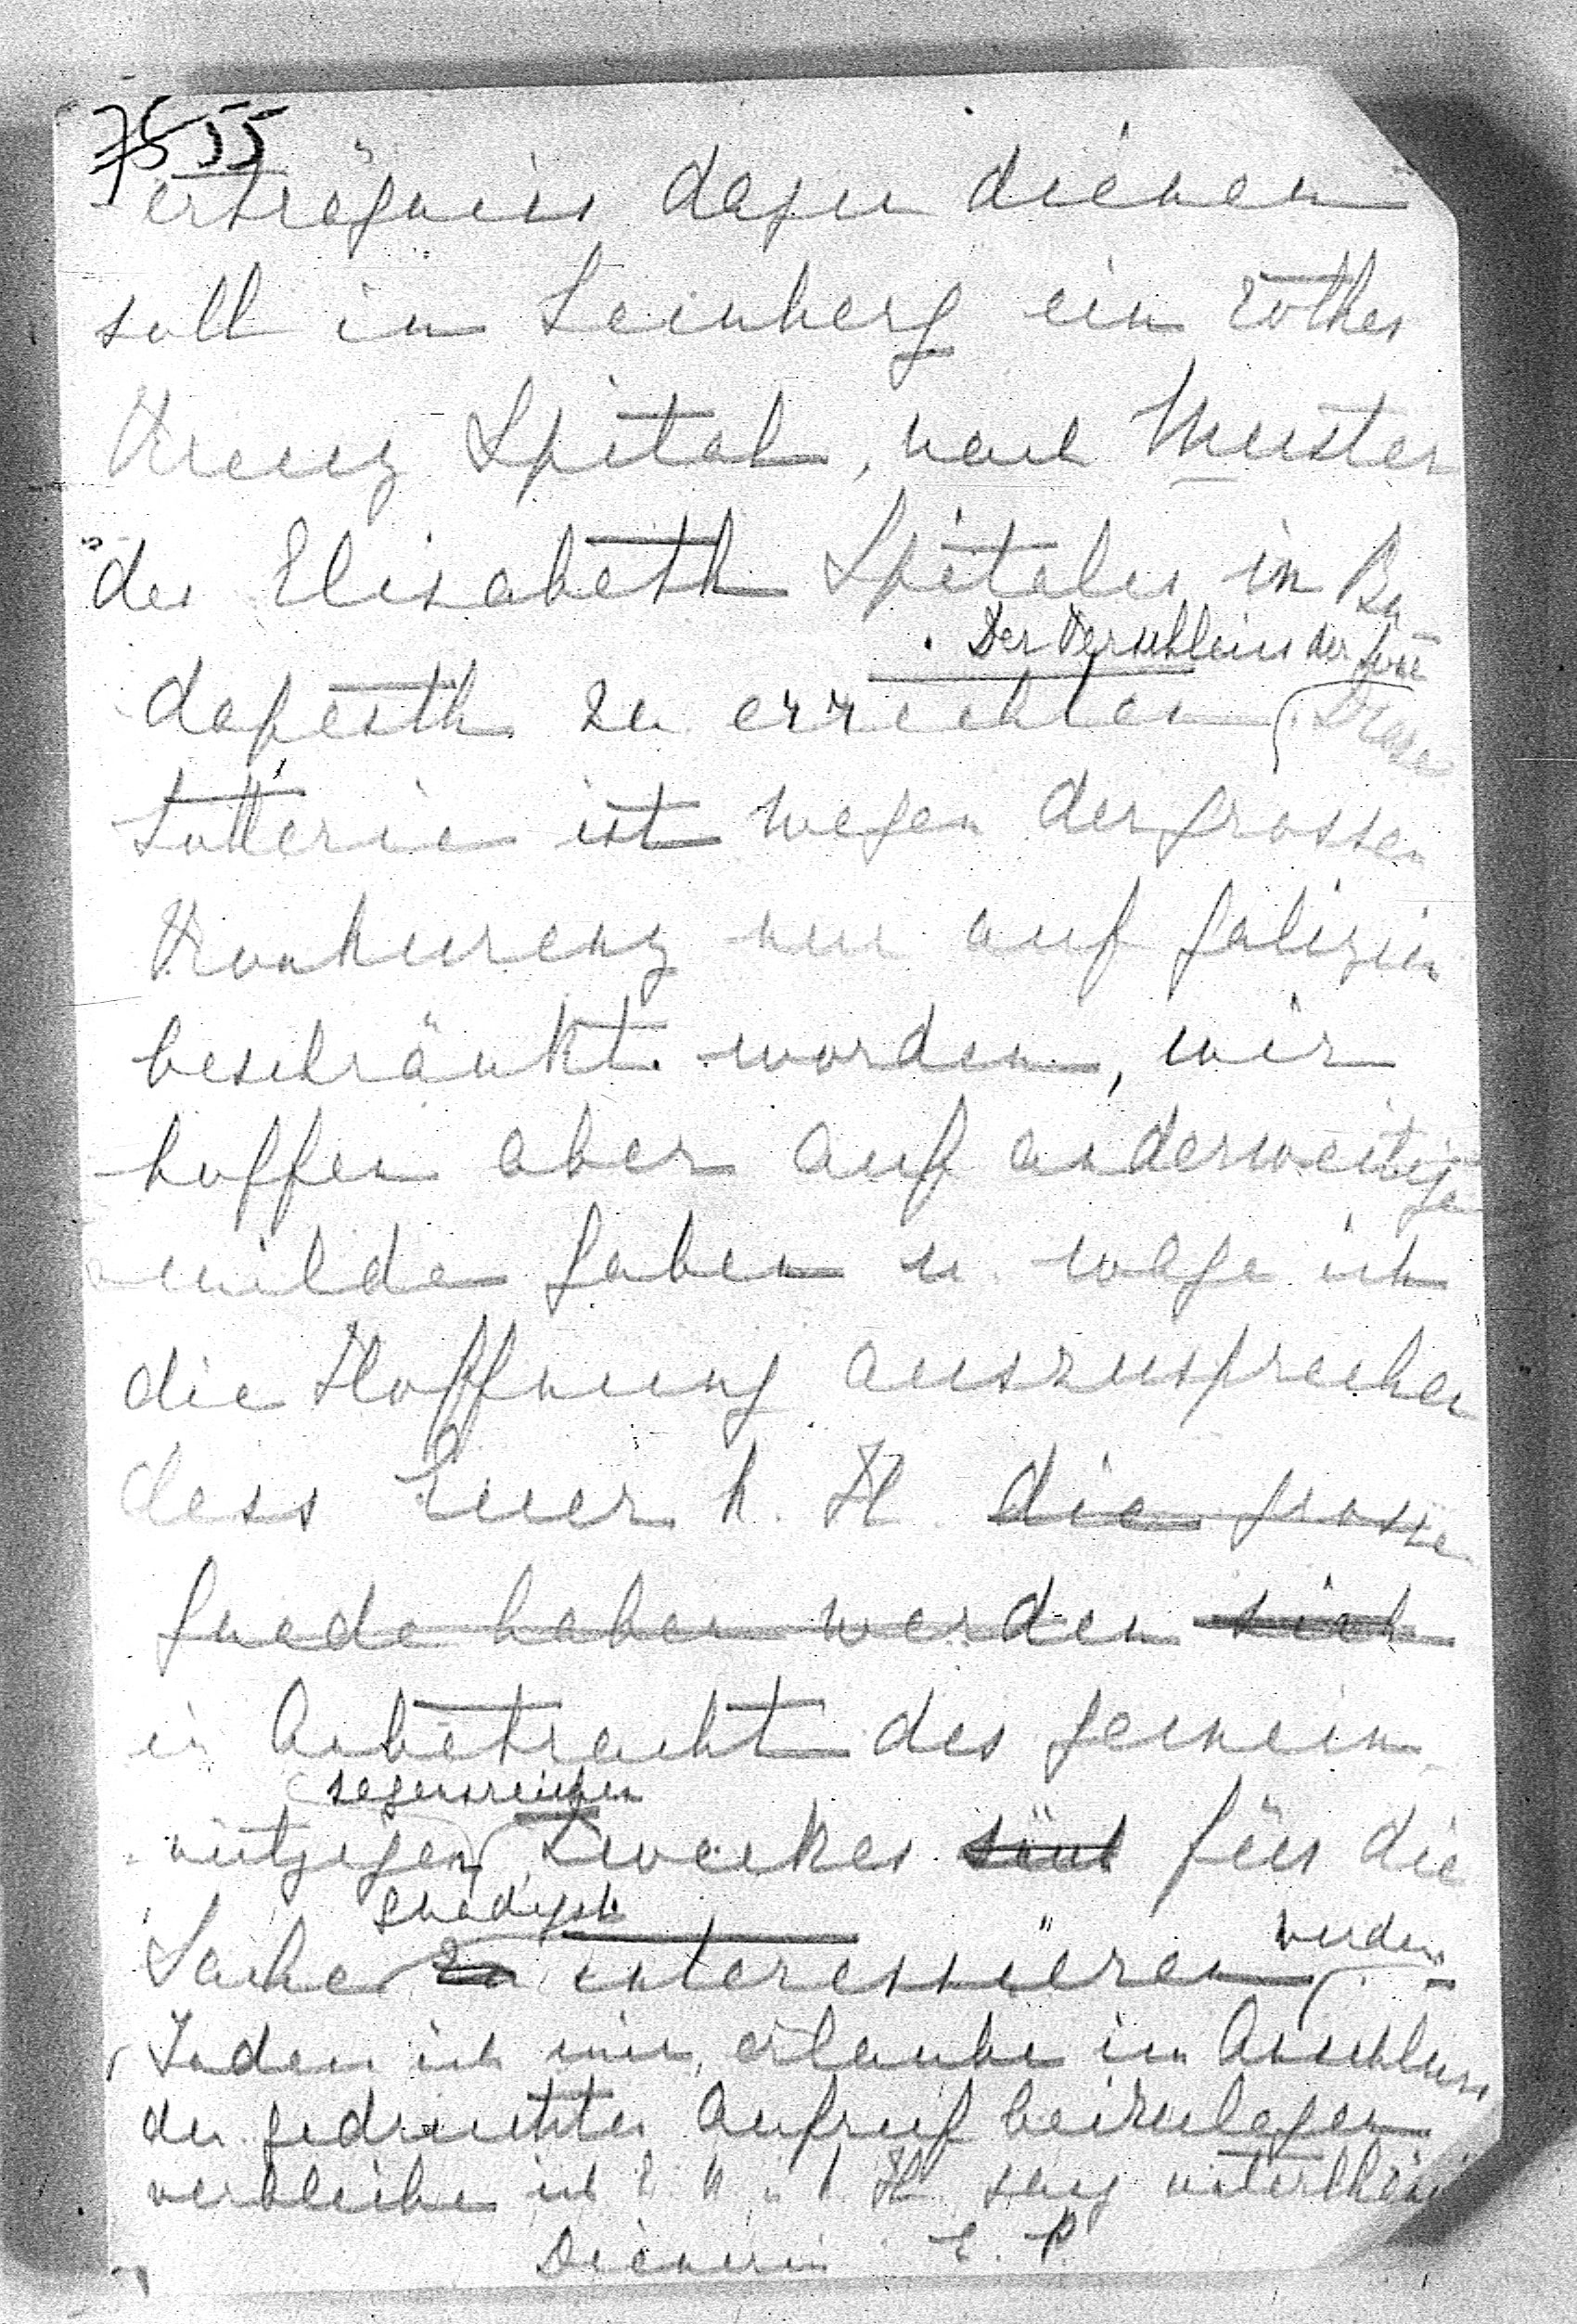 7855
erträgniss dazu dienen
soll in Lemberg ein rothes
Kreuz Spital, nach Muster
des Elisabeth Spitales in Bu
. Der Verschleiss der
dapesth zu errichten Diese
Lotterie ist wegen der grossen
Konkurenz nur auf Galizien
beschränkt worden, wir
hoffen aber auf anderweitige
milde Gaben u. wage ich
die Hoffnung auszusprechen
dass Euer k. H. die grosse
Gnade haben werden sich
in Anbetracht des gemein
segensreichen
nützigen Zweckes für die
gnädigst
Sache zu interessieren werden
Indem ich mir erlaube im Anschluss
den gedruckten Aufruf beizulegen
verbleibe ich E. k. H. ganz unterthän
Dienerin E. P.